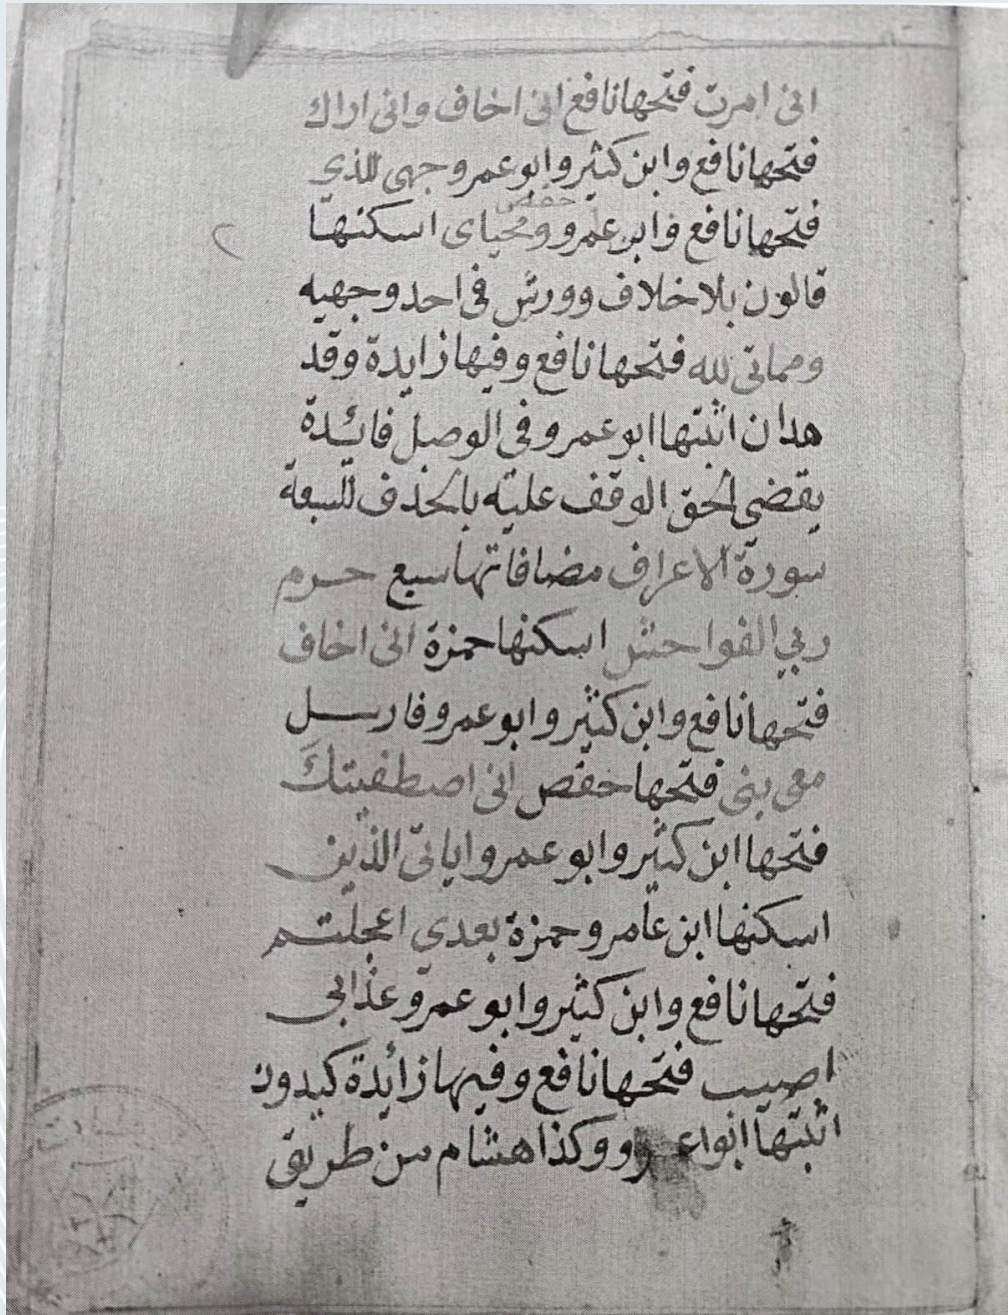 انى امرت فتحها نافع انى اخاف وانى اراك
فتحها نافع وابن كثير وابو عمر وجهى للذي
حفص
فتحها نافع وابن عمرو ومحياى اسكنها
قالون بلا خلاف وورش فى احد وجهيه
ومماتى لله فتحها نافع وفيها زايدة وقد
هدان اثبتها ابو عمرو فى الوصل فائدة
يقضى الحق الوقف عليه بالحذف للسبعة
سورة الاعراف مضافاتها سبع حرم
ربي الفواحش اسكنها حمزة انى اخاف
فتحها نافع وابن كثير وابو عمرو فارسل
معى بنى فتحها حفص انى اصطفيتك
فتحها ابن كثير وابو عمرو اياتى الذين
اسكنها ابن عامر وحمزة بعدي اعجلتم
فتحها نافع وابن كثير وابو عمرو عذابى
اصيب فتحها نافع وفيها زائدة كيدون
اثبتها ابوا عمرو وكذا هشام من طريق